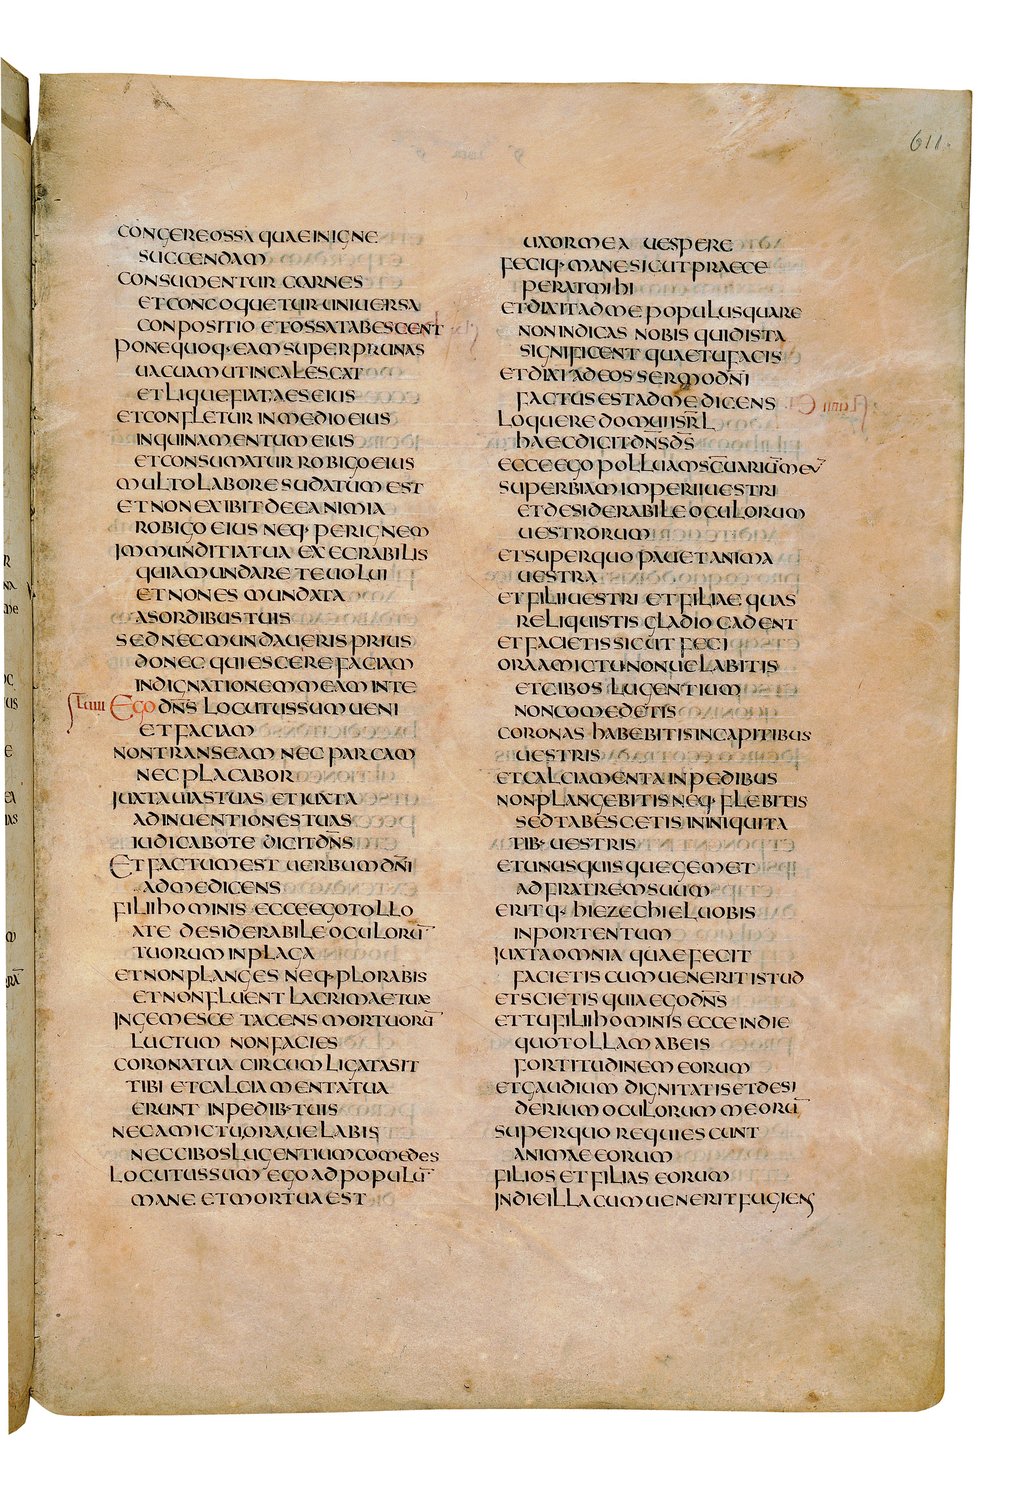 611.
CONGERE OSSA QUAE IN IGNE
SUCCENDAM
CONSUMENTUR CARNES
ET CONCOQUETUR UNIUERSA
CONPOSITIO ET OSSA TABESCENT
PONE QUOQ· EAM SUPER PRUNAS
UACUAM UT INCALESCAT
ET LIQUEFIAT AES EIUS
ET CONFLETUR IN MEDIO EIUS
INQUINAMENTUM EIUS
ET CONSUMATUR ROBIGO EIUS
MULTO LABORE SUDATUM EST
ET NON EXIBIT DE EA NIMIA
ROBIGO EIUS NEQ· PER IGNEM
INMUNDITIA TUA EXECRABILIS
QUIA MUNDARE TE UOLUI
ET NON ES MUNDATA
A SORDIBUS TUIS
SED NEC MUNDAUERIS PRIUS
DONEC QUIESCERE FACIAM
INDIGNATIONEM MEAM IN TE
EGO DN̅S LOCUTUS SUM UENI
ET FACIAM
NON TRANSEAM NEC PARCAM
NEC PLACABOR
IUXTA UIAS TUAS ET IUXTA
ADINUENTIONES TUAS
IUDICABO TE DICIT DN̅S
ET FACTUM EST UERBUM DN̅I
AD ME DICENS
FILII HOMINIS ECCE EGO TOLLO
A TE DESIDERABILE OCULORU̅
TUORUM IN PLAGA
ET NON PLANGES NEQ· PLORABIS
ET NON FLUENT LACRIMAE TUAE
INGEMESCE TACENS MORTUORU̅
LUCTUM NON FACIES
CORONA TUA CIRCUMLIGATA SIT
TIBI ET CALCIAMENTA TUA
ERUNT IN PEDIB· TUIS
NEC AMICTU ORA UELABIS
NEC CIBOS LUGENTIUM COMEDES
LOCUTUS SUM EGO AD POPULU̅
MANE ET MORTUA EST
UXOR MEA UESPERE
FECIQ· MANE SICUT PRAECE
PERAT MIHI
ET DIXIT AD ME POPULUS QUARE
NON INDICAS NOBIS QUID ISTA
SIGNIFICENT QUAE TU FACIS
ET DIXI AD EOS SERMO DN̅I
FACTUS EST AD ME DICENS
LOQUERE DOMUI ISR̅L
HAEC DICIT DN̅S D̅S
ECCE EGO POLLUAM SC̅UARIU̅ MEU̅
SUPERBIAM IMPERII UESTRI
ET DESIDERABILE OCULORUM
UESTRORUM
ET SUPER QUO PAUET ANIMA
UESTRA
ET FILII UESTRI ET FILIAE QUAS
RELIQUISTIS GLADIO CADENT
ET FACIETIS SICUT FECI
ORA AMICTU NON UELABITIS
ET CIBOS LUGENTIUM
NON COMEDETIS
CORONAS HABEBITIS IN CAPITIBUS
UESTRIS
ET CALCIAMENTA IN PEDIBUS
NON PLANGEBITIS NEQ· FLEBITIS
SED TABESCETIS IN INIQUITA
TIB· UESTRIS
ET UNUSQUISQUE GEMET
AD FRATREM SUUM
ERITQ· HIEZECHIEL UOBIS
IN PORTENTUM
IUXTA OMNIA QUAE FECIT
FACIETIS CUM UENERIT ISTUD
ET SCIETIS QUIA EGO DN̅S
ET TU FILII HOMINIS ECCE IN DIE
QUO TOLLAM AB EIS
FORTITUDINEM EORUM
ET GAUDIUM DIGNITATIS ET DESI
DERIUM OCULORUM MEORU̅
SUPER QUO REQUIESCUNT
ANIMAE EORUM
FILIOS ET FILIAS EORUM
IN DIE ILLA CUM UENERIT FUGIENS